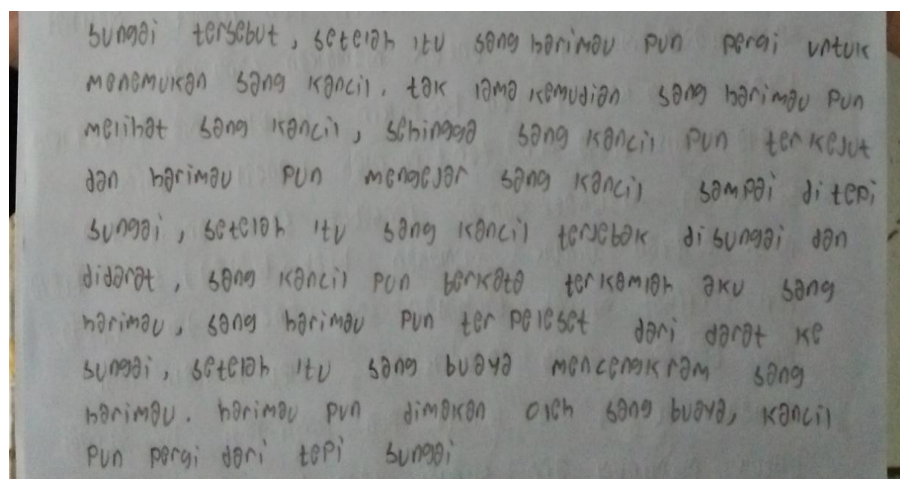 sungai tersebut, setelah itu sang harimau pun pergi untuk
menemukan sang kancil. tak lama kemudian sang harimau pun
melihat sang kancil, sehingga sang kancil pun terkejut
dan harimau pun mengejar sang kancil sampai ditepi
sungai, setelah itu sang kancil tersebak disungai dan
didarat, sang kancil pun berkata terkamlah aku sang
harimau, sang harimau pun ter peleset dari darat ke
sungai, setelah itu sang buaya mencengkram sang
harimau. harimau pun dimakan oleh sang buaya, kancil
pun pergi dari tepi sungai